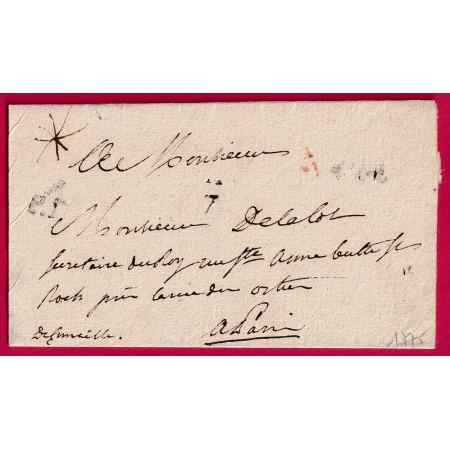 A Monsieur
7
Monsieur Delalot
Secretaire du Roy rue Ste Anne butte St
Roch près la rue des orties
a Paris
1775